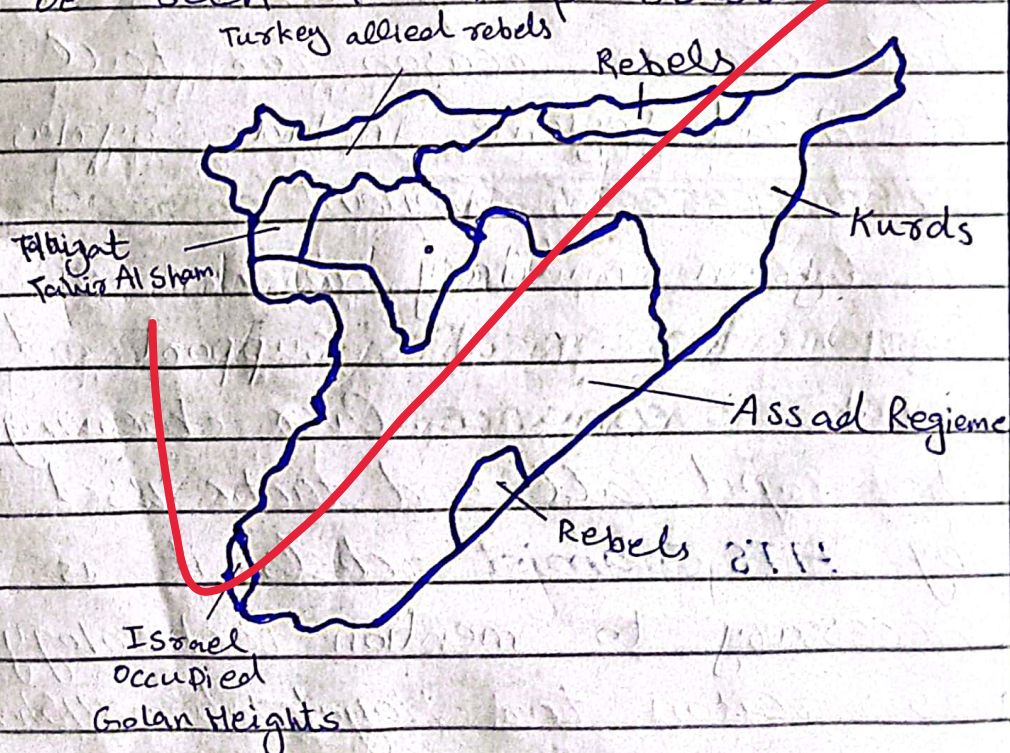 Turkey allied rebels
Rebels
Kurds
Tahir Al Sham
Assad Regieme
Rebels
Israel
occupied
Golan Heights